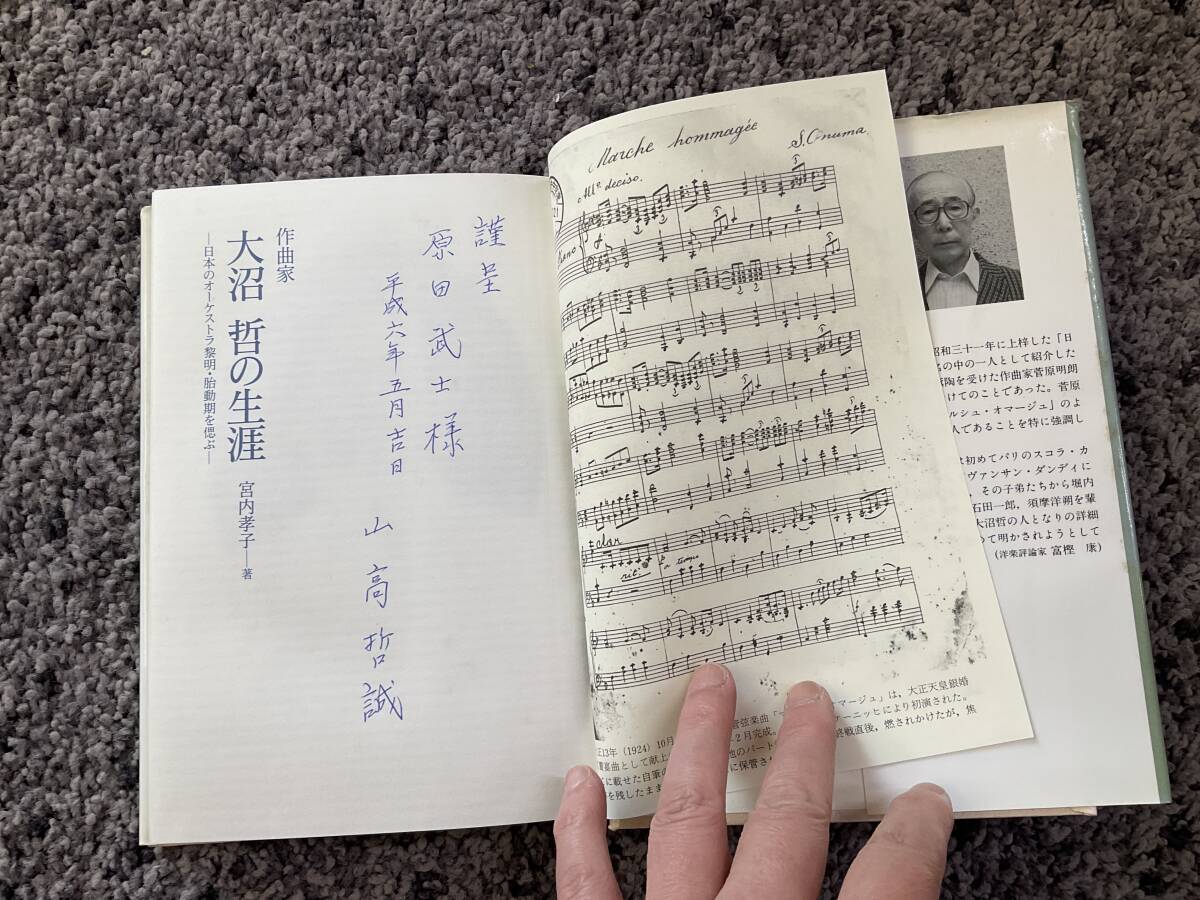 作曲家
大沼 哲の生涯
―日本のオーケストラ黎明・胎動期を偲ぶ―
宮内孝子――著
謹呈
原田武士様
平成六年五月吉日
山高哲誠
Marche hommagée
S. Onuma.
All°. deciso.
Piano
rit.
a tempo
13年 (1924) 10月
管弦楽曲「
マージュ」は，大正天皇銀婚
宴曲として献上
2月完成。
ケーニッヒにより初演された。
に載せた自筆の
他のパート
終戦直後，燃されかけたが，焦
を残したまま
に保管さ
昭和三十一年に上梓した「日
の中の一人として紹介した
陶を受けた作曲家菅原明朗
けてのことであった。菅原
ルシュ・オマージュ」のよ
人であることを特に強調し
は初めてパリのスコラ・カ
ヴァンサン・ダンディに
，その子弟たちから堀内
石田一郎，須摩洋朔を輩
大沼哲の人となりの詳細
めて明かされようとして
(洋楽評論家 富樫 康)